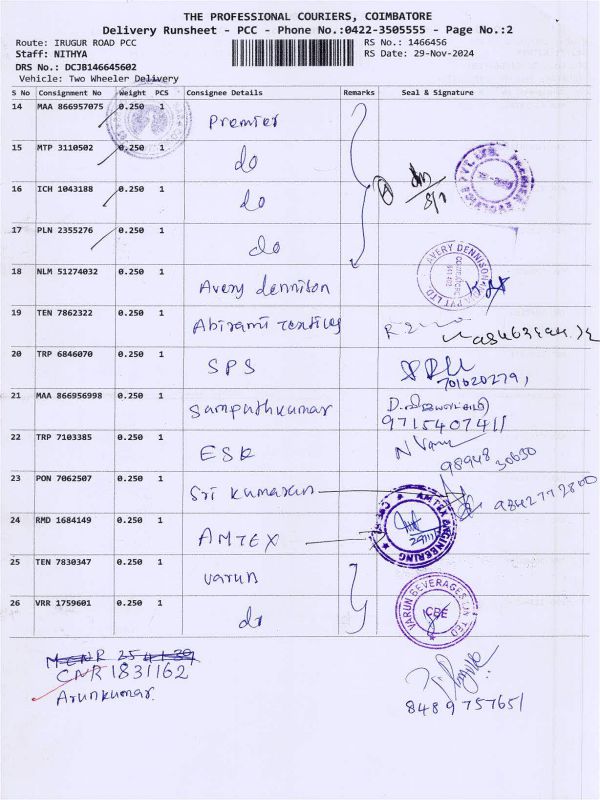 THE PROFESSIONAL COURIERS, COIMBATORE
Delivery Runsheet - PCC - Phone No.:0422-3505555 - Page No.:2
Route: IRUGUR ROAD PCC RS No.: 1466456
Staff: NITHYA RS Date: 29-Nov-2024
DRS No.: DCJB146645602
Vehicle: Two Wheeler Delivery
S No Consignment No Weight PCS Consignee Details Remarks Seal & Signature
14 MAA 866957075 0.250 1 Premier
15 MTP 3110502 0.250 1 do
16 ICH 1043188 0.250 1 do
17 PLN 2355276 0.250 1 do
18 NLM 51274032 0.250 1 Avery dennison AVERY DENNISON
19 TEN 7862322 0.250 1 Abirami textiles
20 TRP 6846070 0.250 1 SPS
21 MAA 866956998 0.250 1 Sampathkumar
9715407411
22 TRP 7103385 0.250 1 ESK
98948 30630
23 PON 7062507 0.250 1 Sri kumaran 9842772800
24 RMD 1684149 0.250 1 AMTEX AMTEX ENGINEERING
25 TEN 7830347 0.250 1 varun
26 VRR 1759601 0.250 1 do VARUN BEVERAGES LIMITED CBE
CNR 1831162
Arunkumar
8489757651